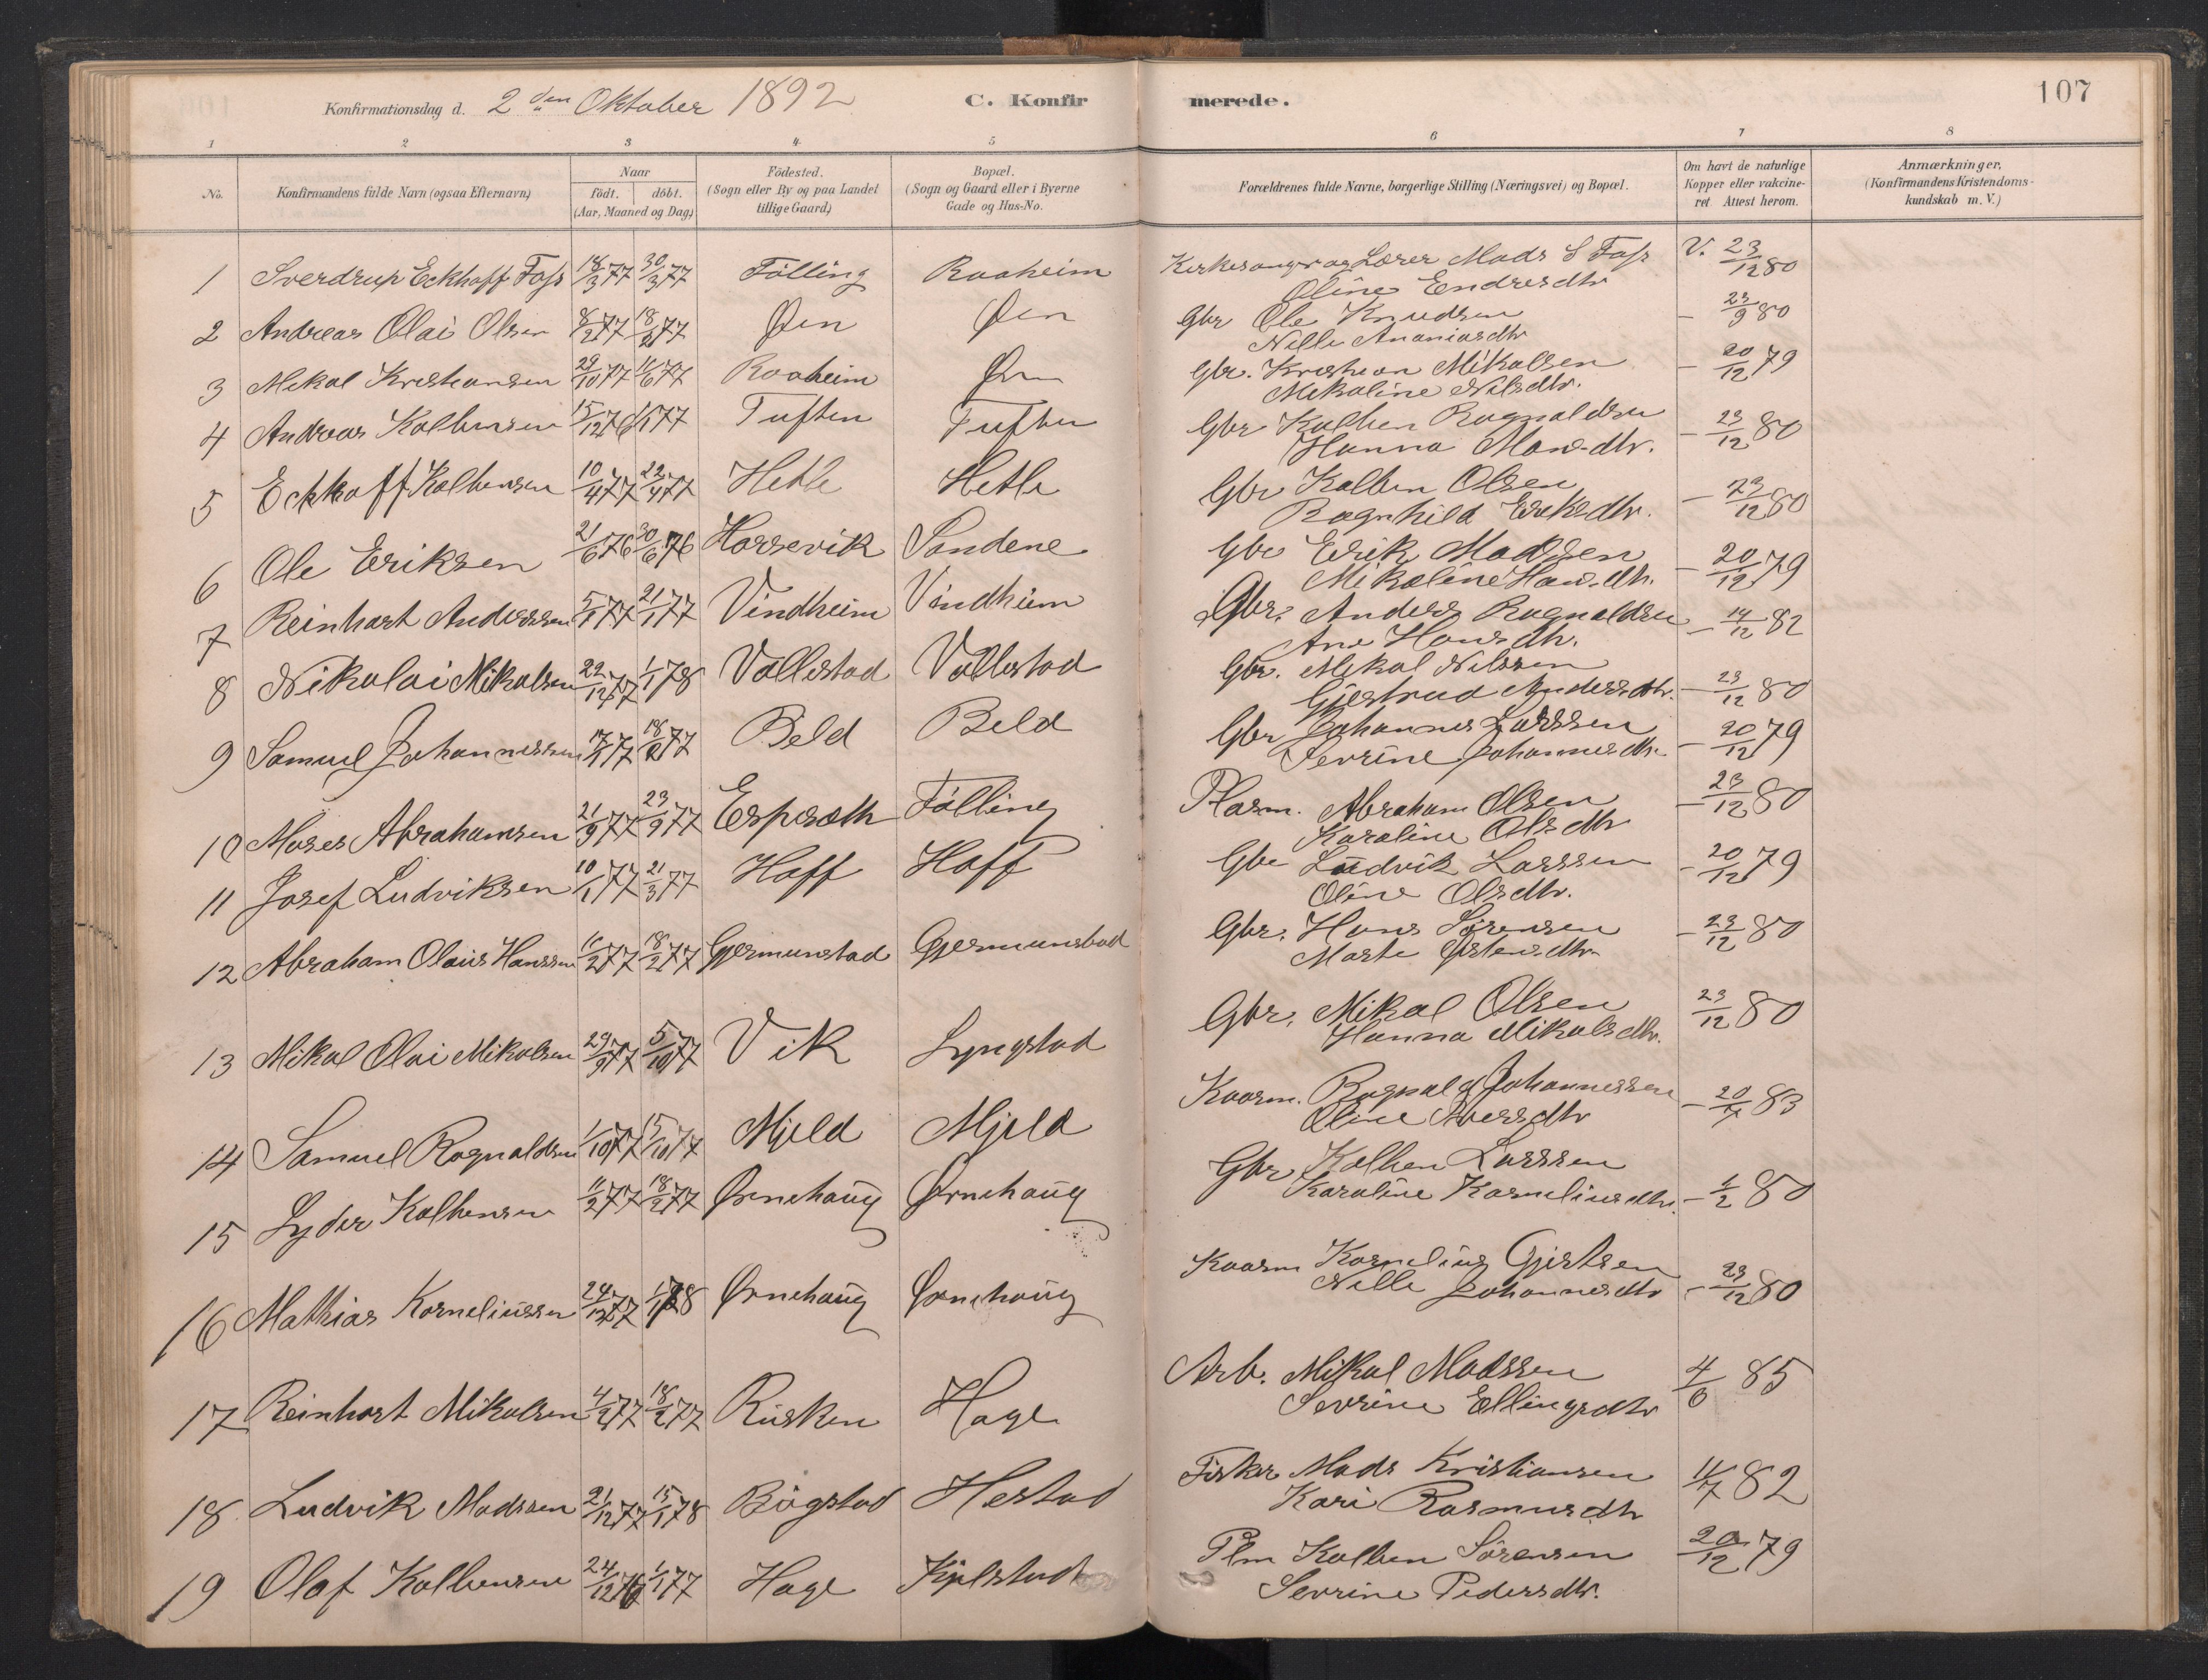 107
Konfirmationsdag d. 2den Oktober 1892 C. Konfirmerede.
1 2 3 4 5 6 7 8
No. Konfirmandens fulde Navn (ogsaa Efternavn) Naar födt. döbt. (Aar, Maaned og Dag) Födested. (Sogn eller By og paa Landet tillige Gaard) Bopæl. (Sogn og Gaard eller i Byerne Gade og Hus-No. Forældrenes fulde Navne, borgerlige Stilling (Næringsvei) og Bopæl. Om havt de naturlige Kopper eller vakcineret Attest herom. Anmærkninger, (Konfirmandens Kristendomskundskab m. V.)
1 Sverdrup Eckhoff Foss 18/3 77 30/3 77 Fölling Raaheim Kirkesanger og Lærer Mads S Foss V. 23/12 80
Oline Endresdtr
2 Andreas Olai Olsen 8/2 77 18/2 77 Øen Øen Gbr Ole Knudsen - 23/9 80
Nille Ananiasdtr
3 Mikal Kristiansen 29/10 77 Raaheim Øen Gbr. Kristian Mikalsen - 20/12 79
Mikaline Nilsdtr.
4 Andreas Kolbensen 15/12 76 1/1 77 Tuften Tuften Gbr Kolben Ragnaldsen - 23/12 80
Hanna Hansdtr.
5 Eckhoff Kolbensen 10/4 77 22/4 77 Hetle Hetle Gbr Kolben Olsen - 23/12 80
Ragnhild Eriksdtr.
6 Ole Eriksen 21/6 76 30/6 76 Horsevik Sandene Gbr Erik Madssen - 20/12 79
Mikaline Hansdtr.
7 Reinhart Anderssen 5/1 77 21/1 77 Vindheim Vindheim Gbr. Anders Ragnaldsen - 14/12 82
Ane Hansdtr.
8 Nikolai Mikalsen 22/12 77 1/1 78 Vallestad Vallestad Gbr. Mikal Nilssen
Gjertrud Andersdtr. - 23/12 80
9 Samuel Johannessen 17/1 77 18/2 77 Beld Beld Gbr Johannes Larssen - 20/12 79
Sevrine Johannesdtr.
10 Moses Abrahamsen 21/9 77 23/9 77 Espesæth Fölling Plasm. Abraham Olsen - 23/12 80
Karoline Olsdtr
11 Josef Ludviksen 10/1 77 21/3 77 Hoff Hoff Gbr Ludvik Larssen - 20/12 79
Oline Olsdtr.
12 Abraham Olaus Hanssen 11/2 77 18/2 77 Gjermunstad Gjermunstad Gbr. Hans Sörensen - 23/12 80
Marte Østensdtr.
13 Mikal Olai Mikalsen 29/9 77 5/10 77 Vik Lyngstad Gbr. Mikal Olsen 23/12 80
Hanna Mikalsdtr.
14 Samuel Ragnaldsen 1/10 77 15/10 77 Mjeld Mjeld Kaarm. Ragnald Johannessen
Oline Iversdtr
15 Lyder Kolbensen 11/2 77 18/2 77 Ørnehaug Ørnehaug Gbr Kolben Larssen
Karoline Korneliusdtr.
16 Mathias Korneliussen 24/12 77 1/1 78 Ørnehaug Ørnehaug Kaarm Kornelius Gjertsen
Nille Johannesdtr - 23/12 80
17 Reinhart Mikalsen 4/2 77 18/2 77 Rusken Hage Arb. Mikal Madssen 4/6 85
Sevrine Ellingsdtr
18 Ludvik Madssen 21/12 77 15/1 78 Bögstad Hestad Fisker Mads Kristiansen 11/7 82
Kari Rasmusdtr
19 Olaf Kolbensen 24/12 76 1/1 77 Hage Kjelstad Plm Kolben Sörensen 20/12 79
Sevrine Pedersdtr.